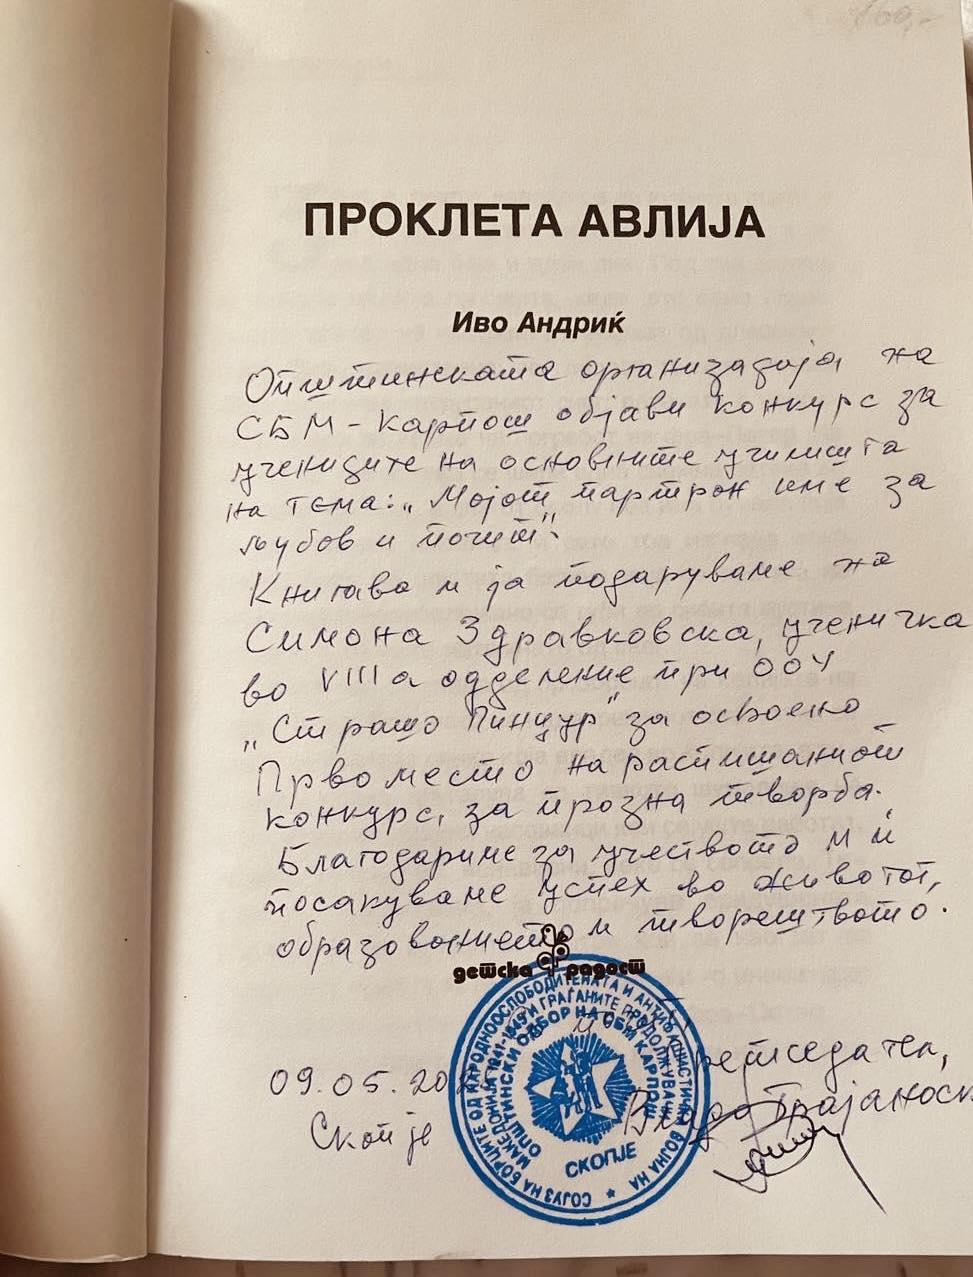 ПРОКЛЕТА АВЛИЈА
Иво Андриќ
Општинската организација на
СБМ - Карпош објави конкурс за
учениците на основните училишта
на тема: „Мојот партрон име за
љубов и почит".
Книгава и ја подаруваме на
Симона Здравковска, ученичка
во VIII а одделение при ООУ
„Страшо Пинџур" за освоено
Прво место на распишаниот
конкурс, за прозна творба.
Благодариме за учеството и ѝ
посакуваме успех во животот,
образованието и творештвото.
детска радост
СОЈУЗ НА БОРЦИТЕ ОД НАРОДНООСЛОБОДИТЕЛНАТА И АНТИФАШИСТИЧКА ВОЈНА НА
МАКЕДОНИЈА 1941-1945 И ГРАЃАНИТЕ ПРОДОЛЖУВАЧИ
ОПШТИНСКИ ОДБОР НА СБМ КАРПОШ
СКОПЈЕ
09.05.20
Претседател,
Скопје
Владо Трајаноски